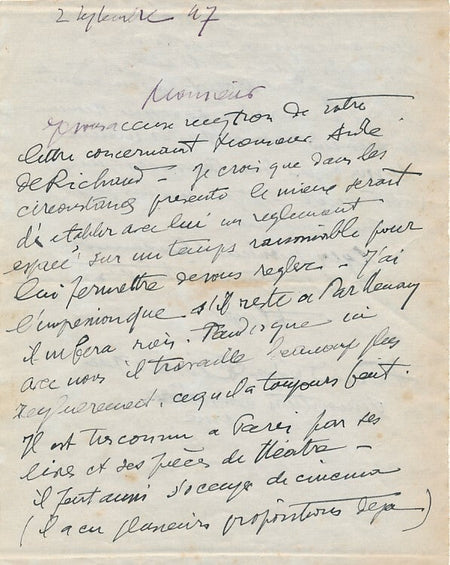 2 septembre 47
Monsieur
Je vous accuse reception de votre
lettre concernant Monsieur André
de Richaud - Je crois que dans les
circonstances presents le mieux serait
d'etablir avec lui un reglement
espacé sur un temps raisonnable pour
lui permettre de vous regler - J'ai
l'impression que s'il reste a Parthenay
il ne fera rien. Tandis que ici
avec nous il travaille beaucoup plus
regulierement, ce qu'il a toujours fait.
Il est tres connu a Paris par ses
livres et ses pièces de théatre -
il peut aussi s'occuper de cinema
(il a eu plusieurs propositions deja)